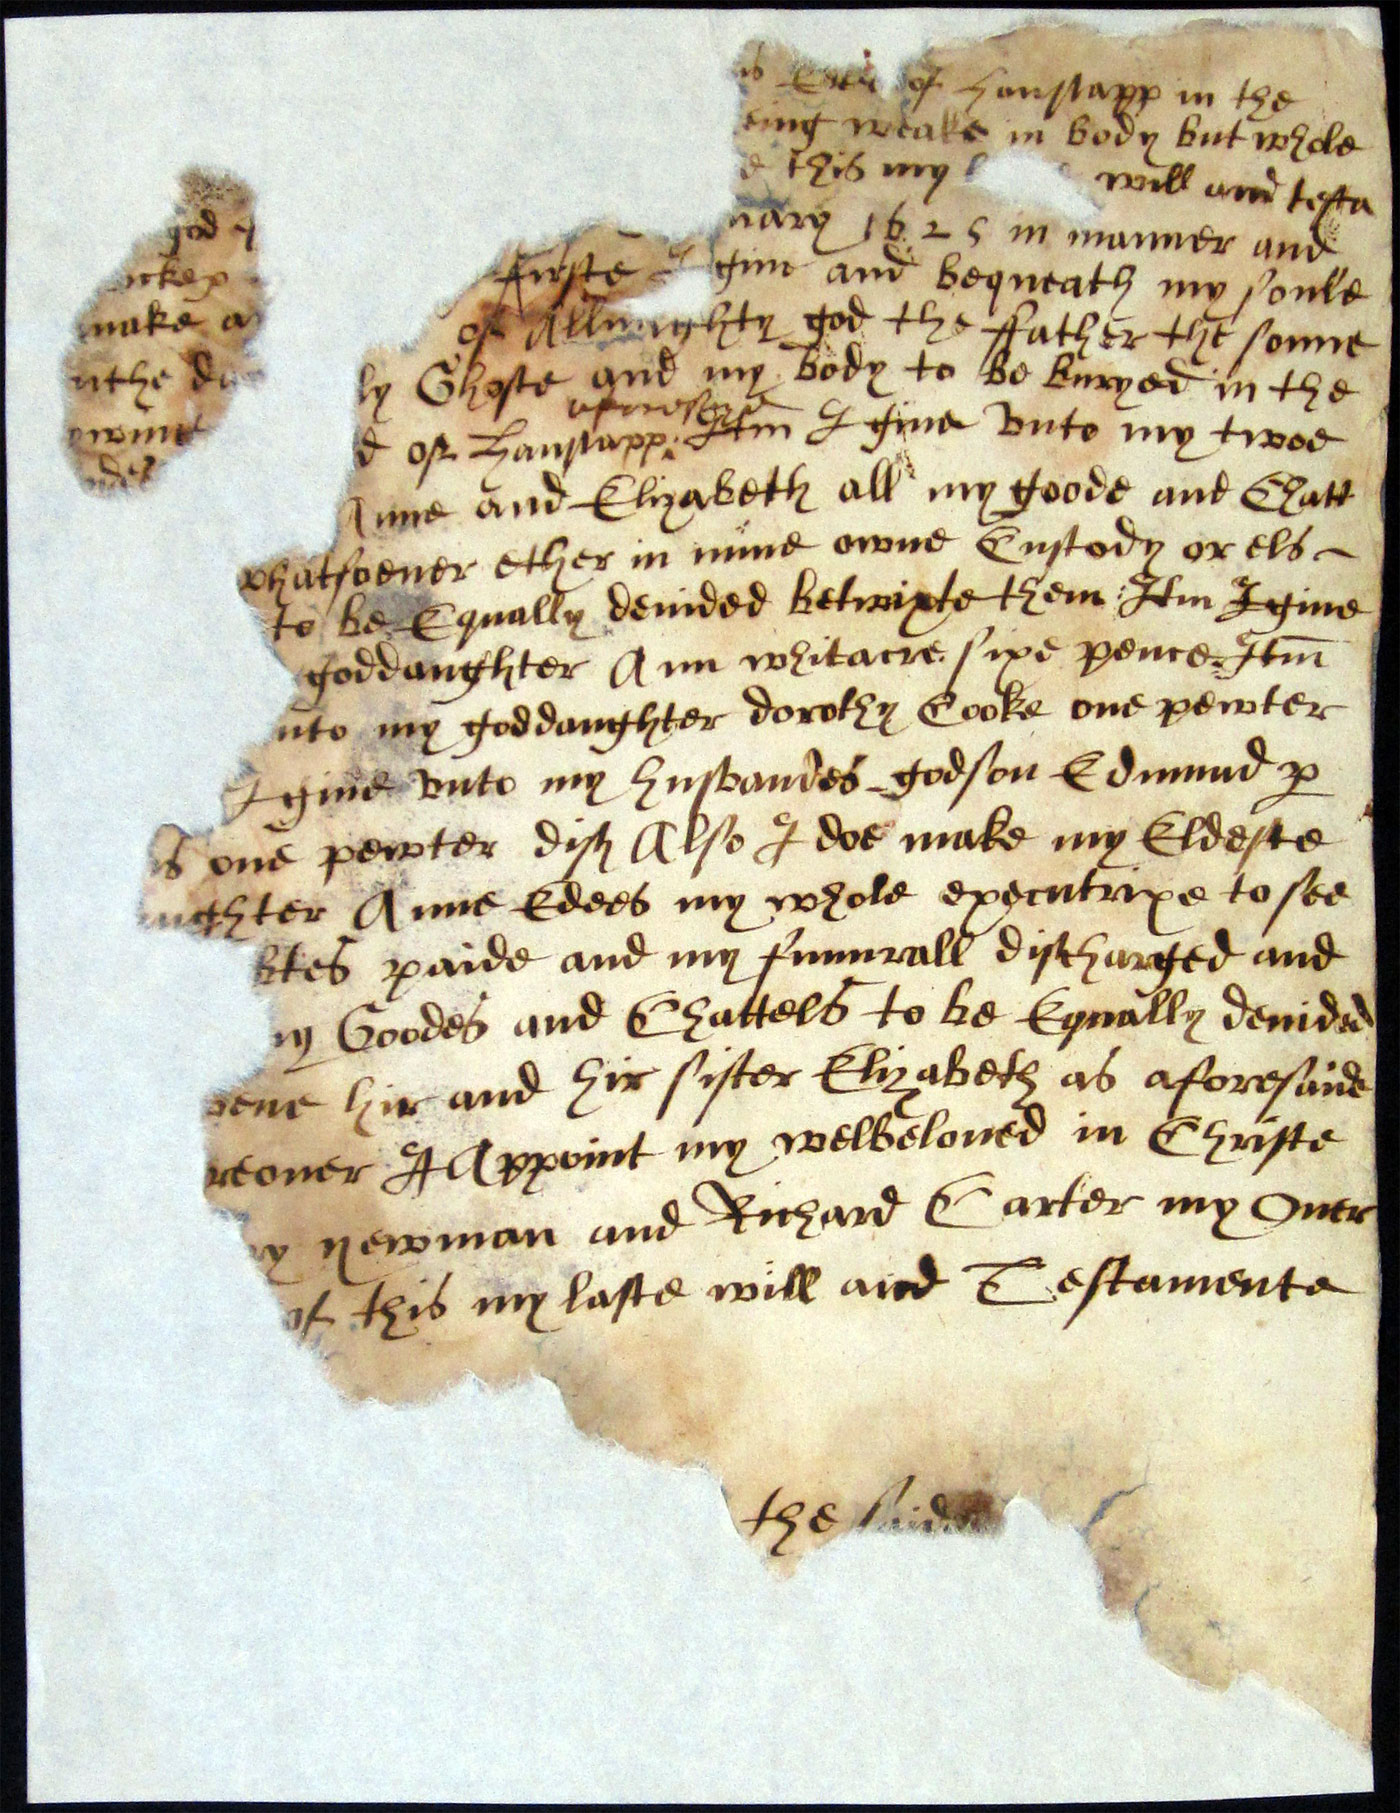 god
make a
in the da
is Edes of hanslapp in the
eing weake in body but whole
e this my will and testa
uary 1625 in manner and
firste I giue and bequeath my soule
of Allmighty god the ffather the sonne
ly Ghoste and my body to be buryed in the
aforesayde
d of hanslapp. Itm I giue vnto my twoe
Anne and Elizabeth all my goode and Chatt
whatsoeuer ether in mine owne Custody or els
to be Equally deuided betwixte them Itm I giue
goddaughter Ann whitacre sixe pence Itm
nto my goddaughter dorothy Cooke one pewter
I giue vnto my husbandes godson Edmund p
is one pewter dish Also I doe make my Eldeste
aughter Anne Edees my whole executrixe to see
btes paide and my funurall discharged and
my Goodes and Chattels to be Equally deuided
weene hir and hir sister Elizabeth as aforesaide
reouer I Appoint my welbeloued in Christe
ry newman and Richard Carter my Ouer
of this my laste will and Testamente
the said